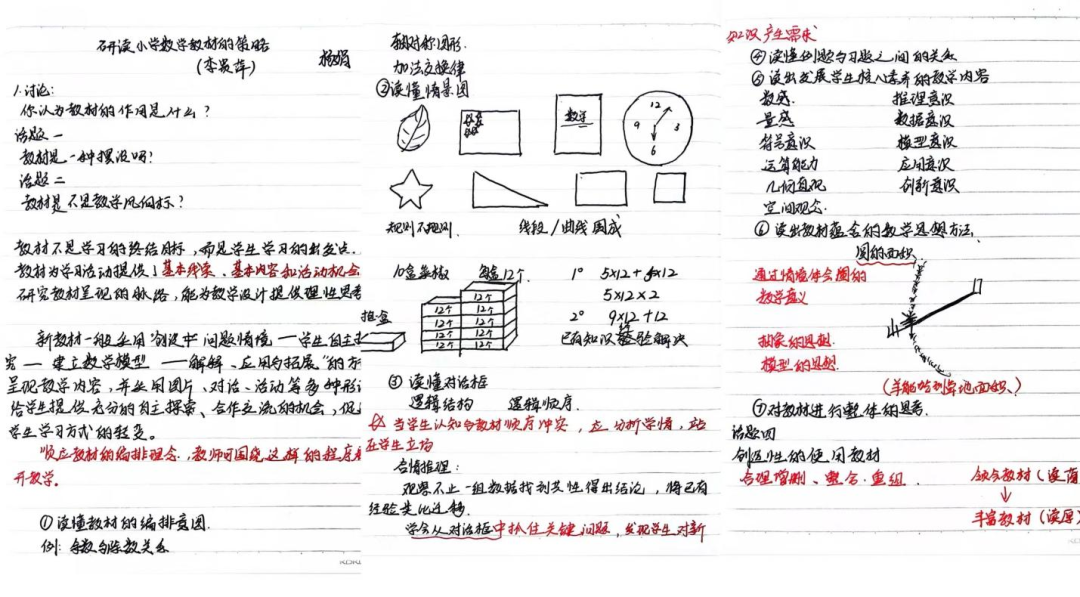 研读小学数学教材的策略
(李景萍)
杨娟
1.讨论:
你认为教材的作用是什么?
话题一
教材是一种摆设吗?
话题二
教材是不是教学风向标?
教材不是学习的终结目标,而是学生学习的出发点.
教材为学习活动提供」基本线索、基本内容和活动机会
研究教材呈现的脉络,能为教学设计提供理性思考
新教材一般采用"创设 问题情境—学生自主探
究—建立数学模型—解释、应用与拓展"的方
呈现教学内容,并采用图片、对话、活动等多种形式
给学生提供充分的自主探索、合作交流的机会,促
学生学习方式的转变。
顺应教材的编排理念,教师可围绕这样的程序
开教学。
①读懂教材的编排意图.
例: 余数与除数关系
轴对称图形.
加法交换律
②读懂情景图
数学
12
9 3
6
规则不规则. 线段/曲线围成
10盒 每盒12个.
12个
12个 12个
12个 12个
12个 12个
12个 12个
1° 5×12+5×12
5×12×2
2° 9×12+12
已有知识经验解决
③ 读懂对话框
逻辑结构 逻辑顺序.
当学生认知与教材顺序冲突,应分析学情,站
在学生立场
合情推理:
观察不止一组数据找到共性得出结论,将已有
经验类比迁移.
学会从对话框中抓住关键问题,发现学生对新
知识产生需求
④读懂例题与习题之间的关系
⑤读出发展学生核心素养的教学内容
数感. 推理意识
量感 数据意识
符号意识 模型意识
运算能力 应用意识
几何直观 创新意识
空间观念.
⑥读出教材蕴含的数学思想方法.
圆的面积
通过情境体会圆的
数学意义
抽象的思想
模型的思想.
(羊能吃到草地面积.)
⑦对教材进行整体的思考.
话题四
创造性的使用教材
合理增删、整合、重组. 领会教材(读
↓
丰富教材(读厚)